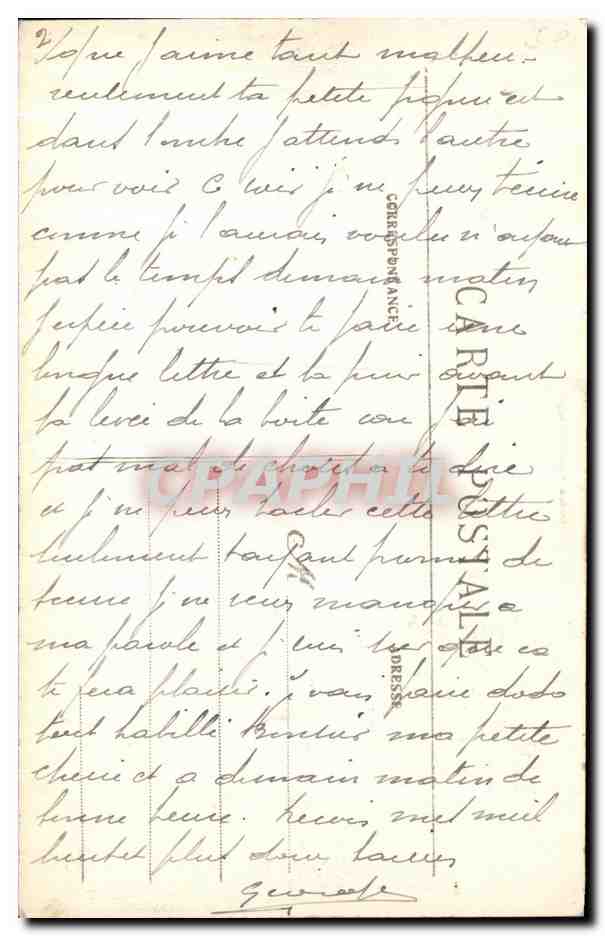 2
que j'aime tant malheu-
reusement ta petite figure est
dans l'ombre j'attends l'autre
pour voir Ce soir je ne peux t'écrire
comme je l'aurais voulu n'ayant
pas le temps demain matin
j'espère pouvoir te faire une
longue lettre et la finir avant
la levée de la boite car j'ai
pas mal de choses a te dire
et je ne peux bacler cette lettre
seulement t'ayant promis de
je ne veux manquer a
ma parole et je suis sur que ca
te fera plaisir. je vais faire dodo
tout habillé Bonsoir ma petite
cherie et a demain matin de
bonne heure. Recois mes mil
plus doux baisers
CORRESPONDANCE
CARTE POSTALE
ADRESSE
CPAPHIL